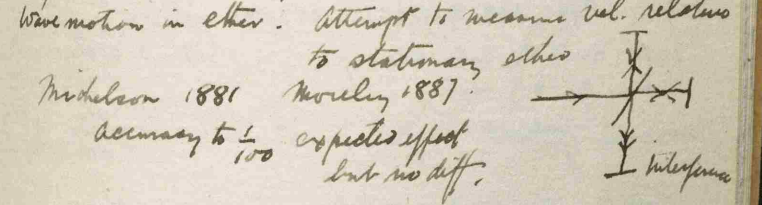 Wave motion in ether. Attempt to measure vel. relative
to stationary ether
Michelson 1881 Moreley 1887.
accuracy to 1/100 expected effect
but no diff.
Interference